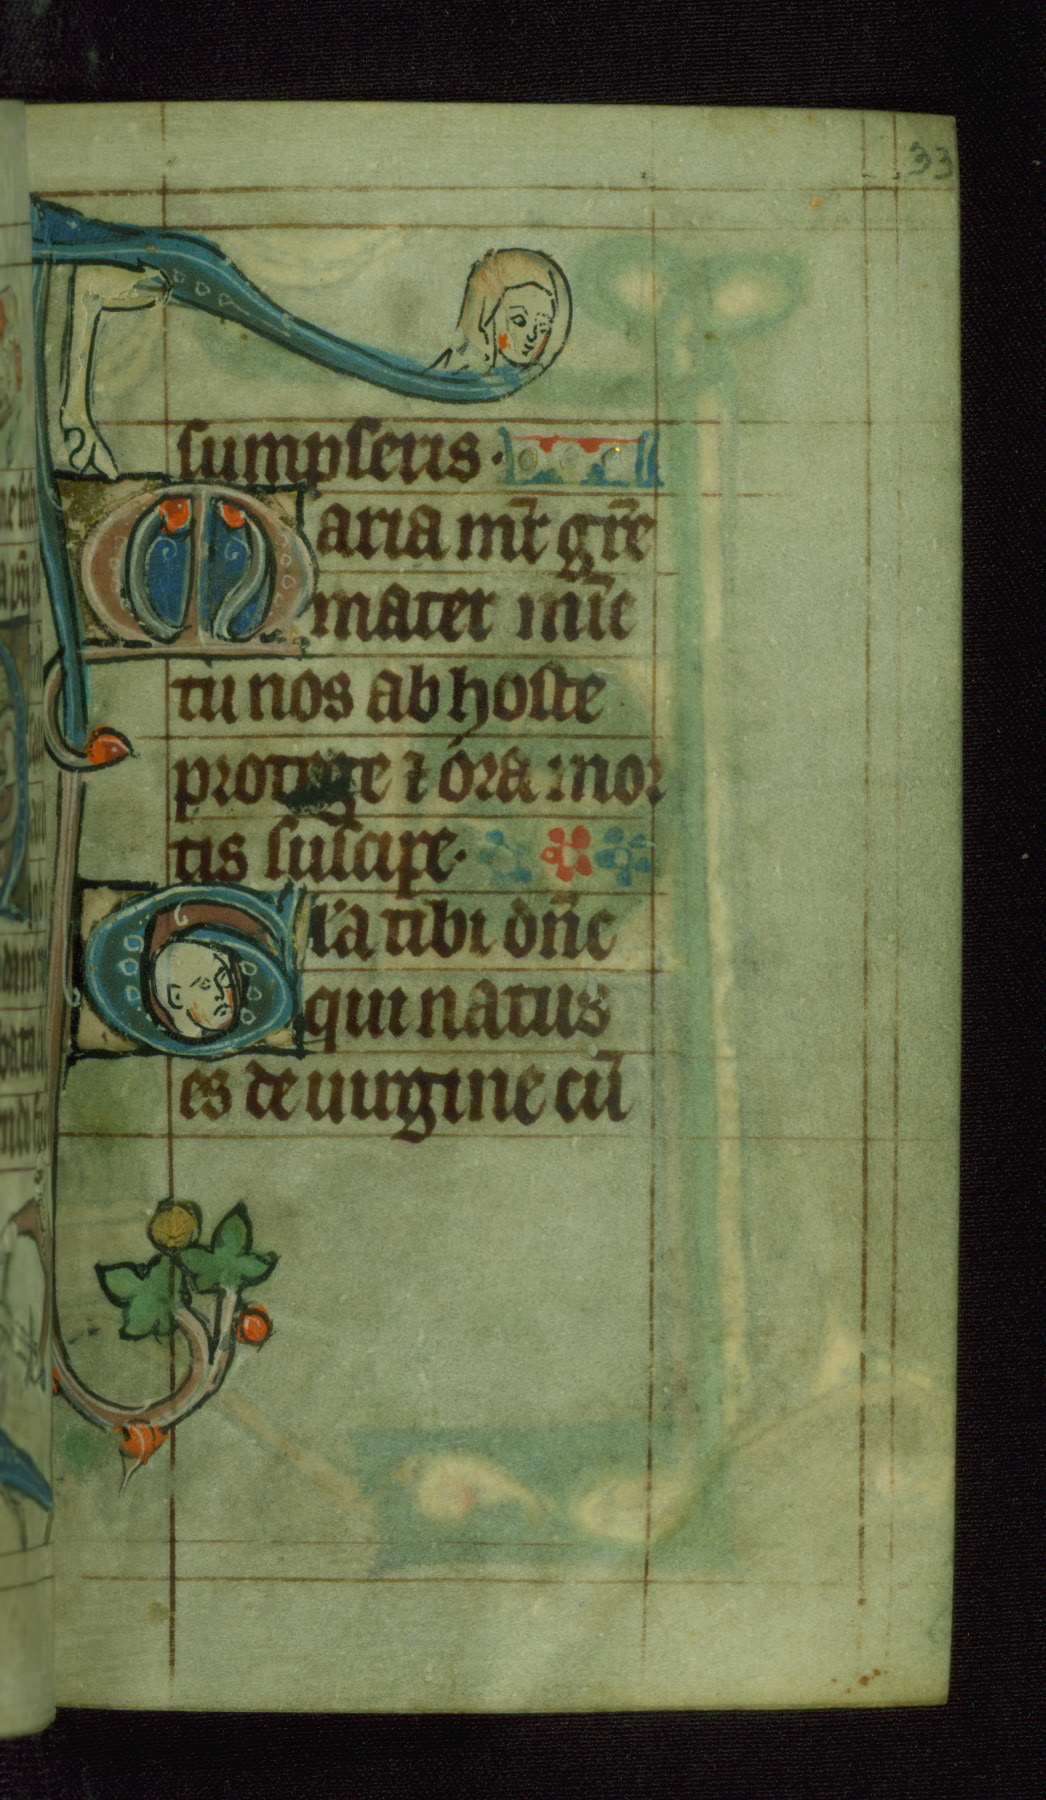 33
sumpseris·
Maria mr̄ gr̄e
mater mīe
tu nos ab hoste
protege ⁊ ora mor
tis suscipe·
Gl'a tibi dn̄e
qui natus
es de uirgine cū